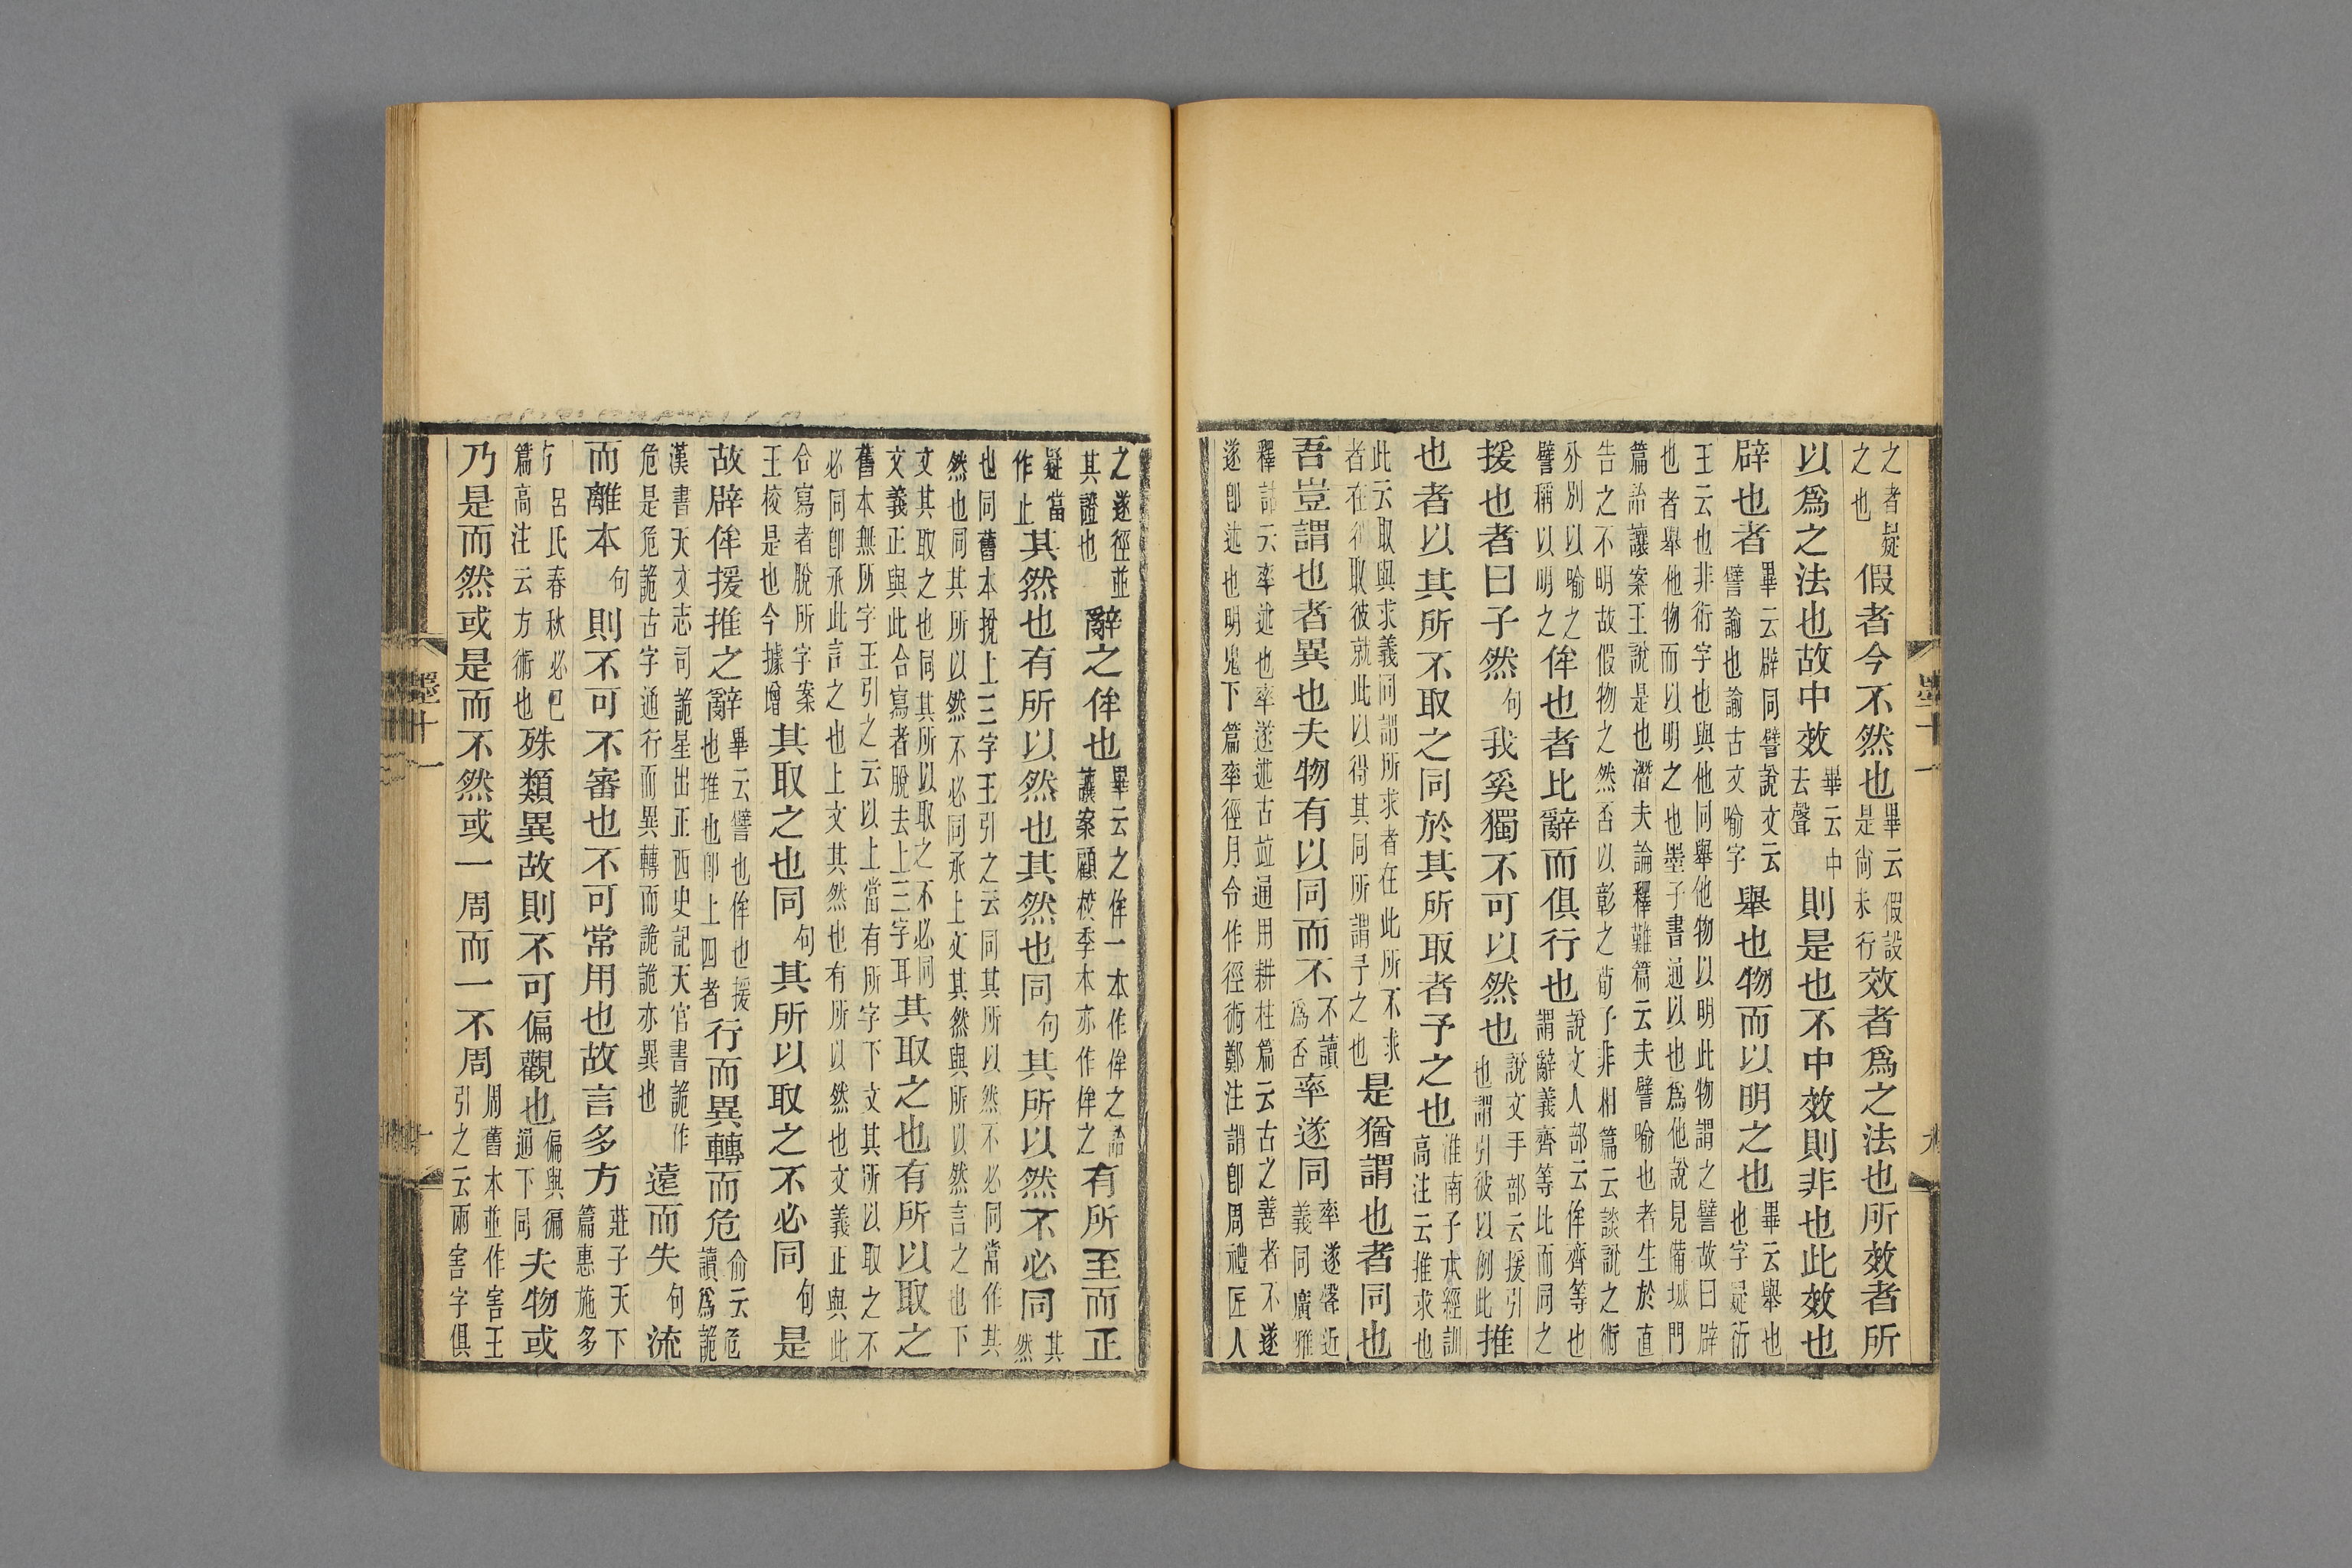 之者疑之也假者今不然也畢云假設是尚未行效者爲之法也所效者所
以爲之法也故中效畢云中去聲則是也不中效則非也此效也
辟也者畢云辟同譬說文云譬諭也諭古文喻字舉也物而以明之也畢云舉也也字疑衍
王云也非衍字也與他同舉他物以明此物謂之譬故曰辟
也者舉他物而以明之也墨子書通以也爲他說見備城門
篇詒讓案王說是也潛夫論釋難篇云夫譬喻也者生於直
告之不明故假物之然否以彰之荀子非相篇云談說之術
分別以喻之譬稱以明之侔也者比辭而俱行也說文人部云侔齊等也謂辭義齊等比而同之
援也者曰子然句我奚獨不可以然也說文手部云援引也謂引彼以例此推
也者以其所不取之同於其所取者予之也淮南子本經訓高注云推求也
此云取與求義同謂所求者在此所不求者在彼取彼就此以得其同所謂予之也是猶謂也者同也
吾豈謂也者異也夫物有以同而不不讀爲否率遂同率遂聲近義同廣雅
釋詁云率述也率遂述古並通用耕柱篇云古之善者不遂
遂卽述也明鬼下篇率徑月令作徑術鄭注謂卽周禮匠人
墨十一
九
之遂徑並其證也辭之侔也畢云之侔一本作侔之詒讓案顧校季本亦作侔之有所至而正
疑當作止其然也有所以然也其然也同句其所以然不必同其然
也同舊本挩上三字王引之云同其所以然不必同當作其
然也同其所以然不必同承上文其然與所以然言之也下
文其取之也同其所以取之不必同文義正與此合寫者脫去上三字耳其取之也有所以取之
舊本無所字王引之云以上當有所字下文其所以取之不
必同卽承此言之也上文其然也有所以然也文義正與此
合寫者脫所字案王校是也今據增其取之也同句其所以取之不必同句是
故辟侔援推之辭畢云譬也侔也援也推也卽上四者行而異轉而危俞云危讀爲詭
漢書天文志司詭星出正西史記天官書詭作危是危詭古字通行而異轉而詭詭亦異也遠而失句流
而離本句則不可不審也不可常用也故言多方莊子天下篇惠施多
方呂氏春秋必己篇高注云方術也殊類異故則不可偏觀也偏與徧通下同夫物或
乃是而然或是而不然或一周而一不周周舊本並作害王引之云兩害字俱
墨十一